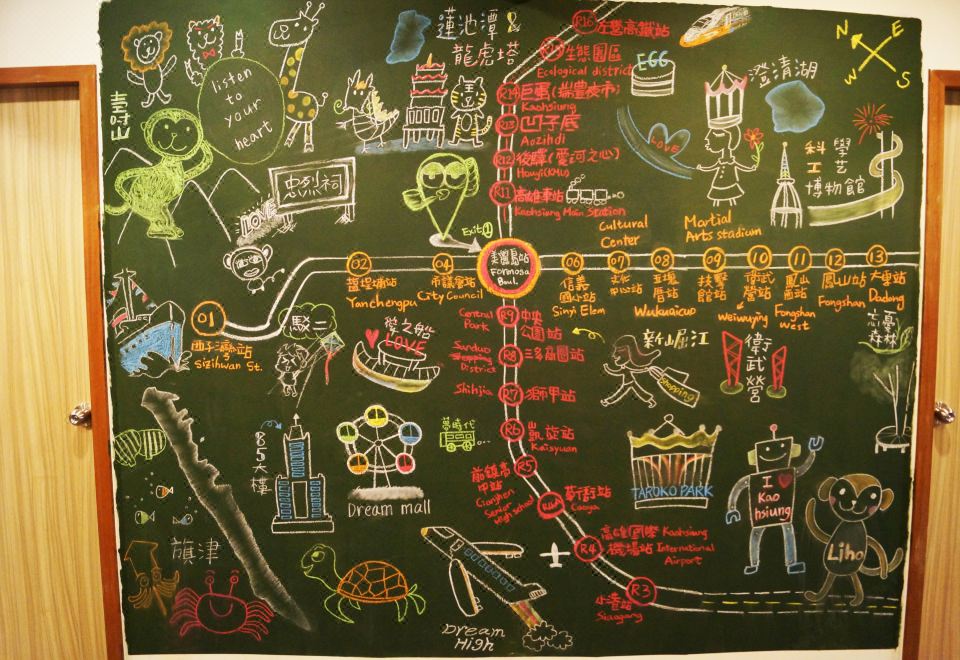 listen
to
your
heart
壽山
忠烈祠
LOVE
蓮池潭 &
龍虎塔
R16 左營高鐵站
R15 生態園區
Ecological district
R14 巨蛋(瑞豐夜市)
Kaohsiung
R13 凹子底
Aozihdi
R12 後驛(愛河之心)
Houyi(KMU)
R11 高雄車站
Kaohsiung Main Station
EGG
LOVE
澄清湖
N
E
W
S
科
工
學
艺
博物館
Cultural
Center
Martial
Arts stadium
Exit 1
美麗島站
Formosa
Boul.
01
西子灣站
Sizihwan St.
02
鹽埕埔站
Yanchengpu
04
市議會站
City Council
06
信義
國小站
Sinyi Elem
07
文化
中心站
08
五塊
厝站
Wukuaicuo
09
技擊
館站
10
衛武
營站
Weiwuying
11
鳳山
西站
Fongshan
West
12
鳳山站
Fongshan
13
大東站
Dadong
忘憂
森林
駁二
愛之船
LOVE
Central
Park
R9
中央
公園站
Sanduo
Shopping
District
R8 三多商圈站
Shihjia
R7 獅甲站
R6 凱旋站
Kaisyuan
前鎮高
中站
Cianjhen
Senior
High school
R5
R4A
草衙站
Caoya
R4
高雄國際
機場站
Kaohsiung
International
Airport
R3
小港站
Siaogang
新堀江
shopping
衛
武
營
85大樓
夢時代
Dream mall
TAROKO PARK
I
Kao
hsiung
Liho
旗津
Dream
High